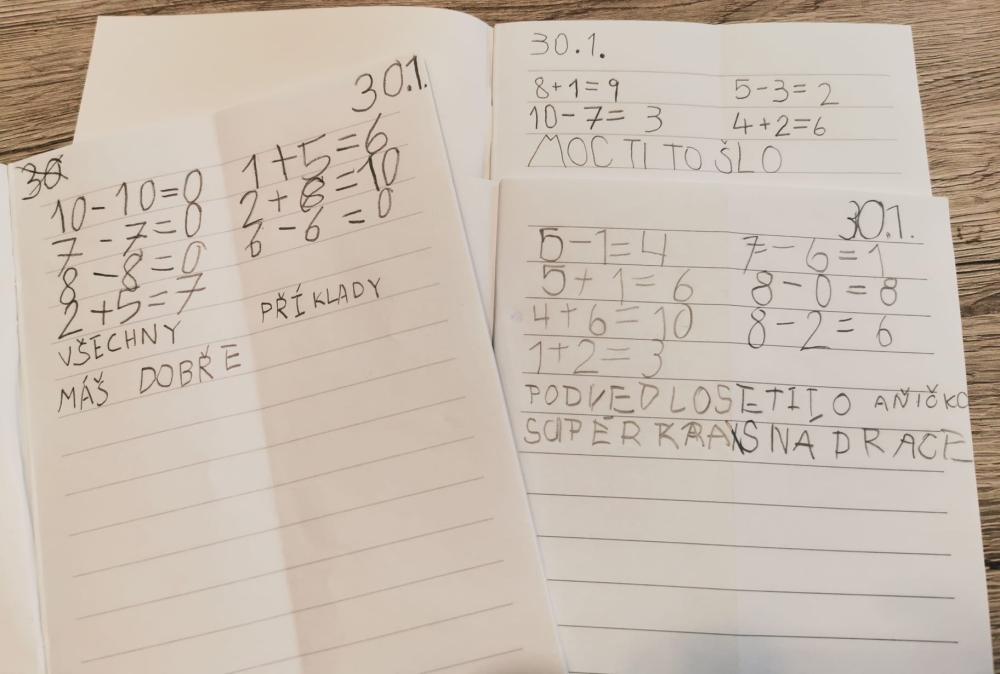 30.1.
30
10-10=0 1+5=6
7-7=0 2+8=10
8-8=0 6-6=0
2+5=7
VŠECHNY PŘÍKLADY
MÁŠ DOBŘE
30.1.
8+1=9 5-3=2
10-7=3 4+2=6
MOC TI TO ŠLO
30.1.
5-1=4 7-6=1
5+1=6 8-0=8
4+6=10 8-2=6
1+2=3
PODVEDLOSETITO AŇIČKO
SUPÉR KRASNA DRACE